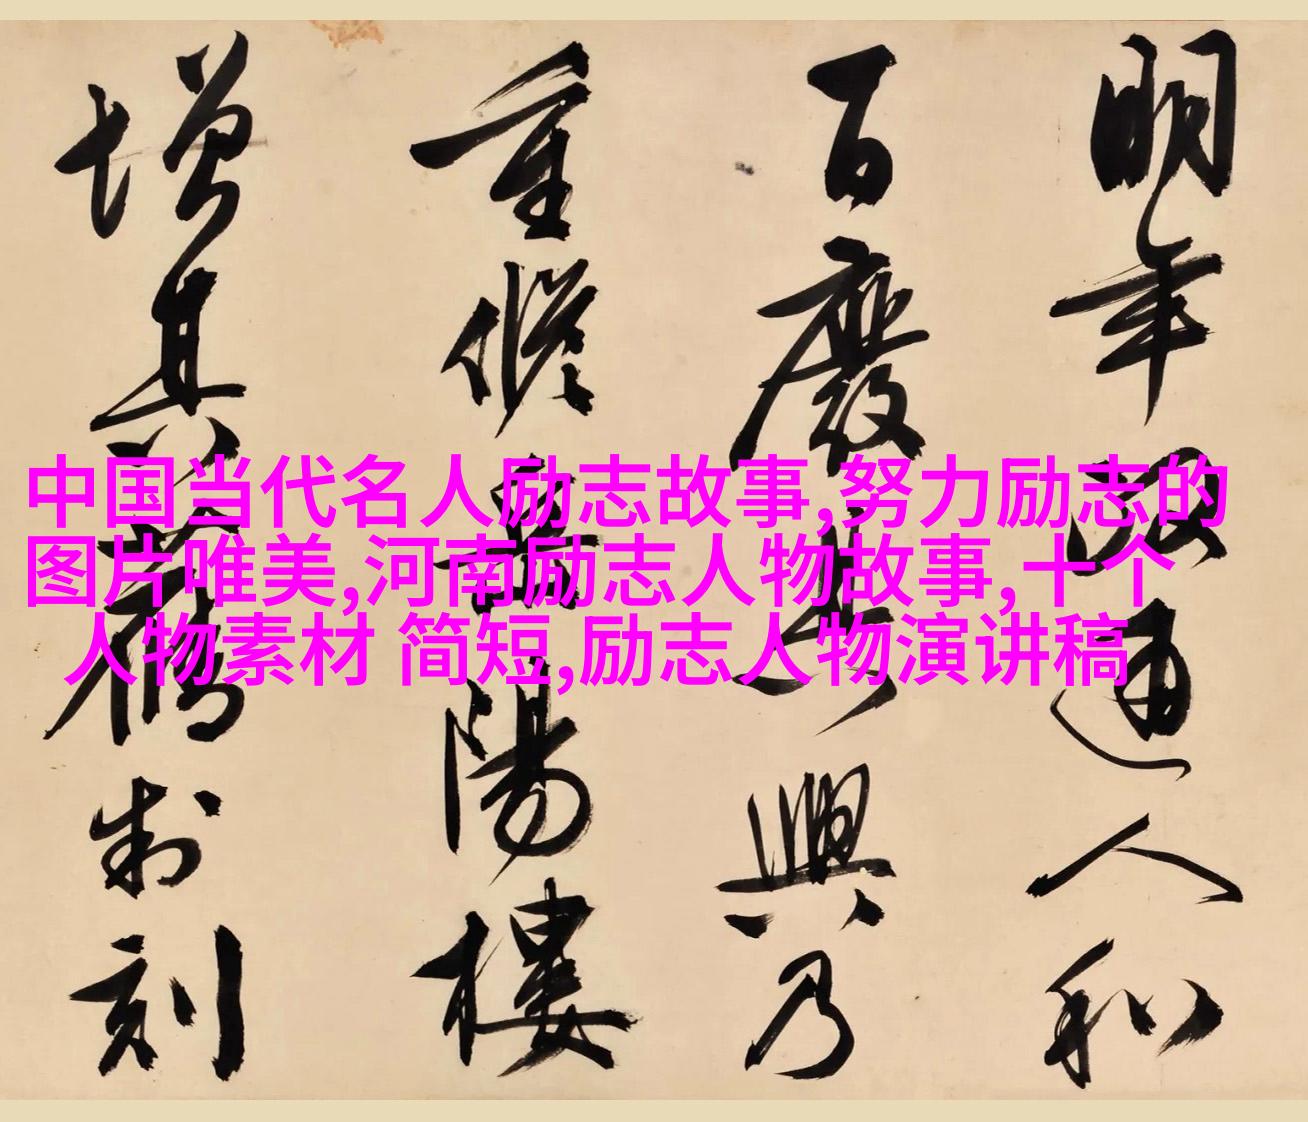 明年政通人和
百廢具興乃
重脩岳陽樓
增其舊制刻
中国当代名人励志故事,努力励志的
图片唯美,河南励志人物故事,十个
人物素材 简短,励志人物演讲稿